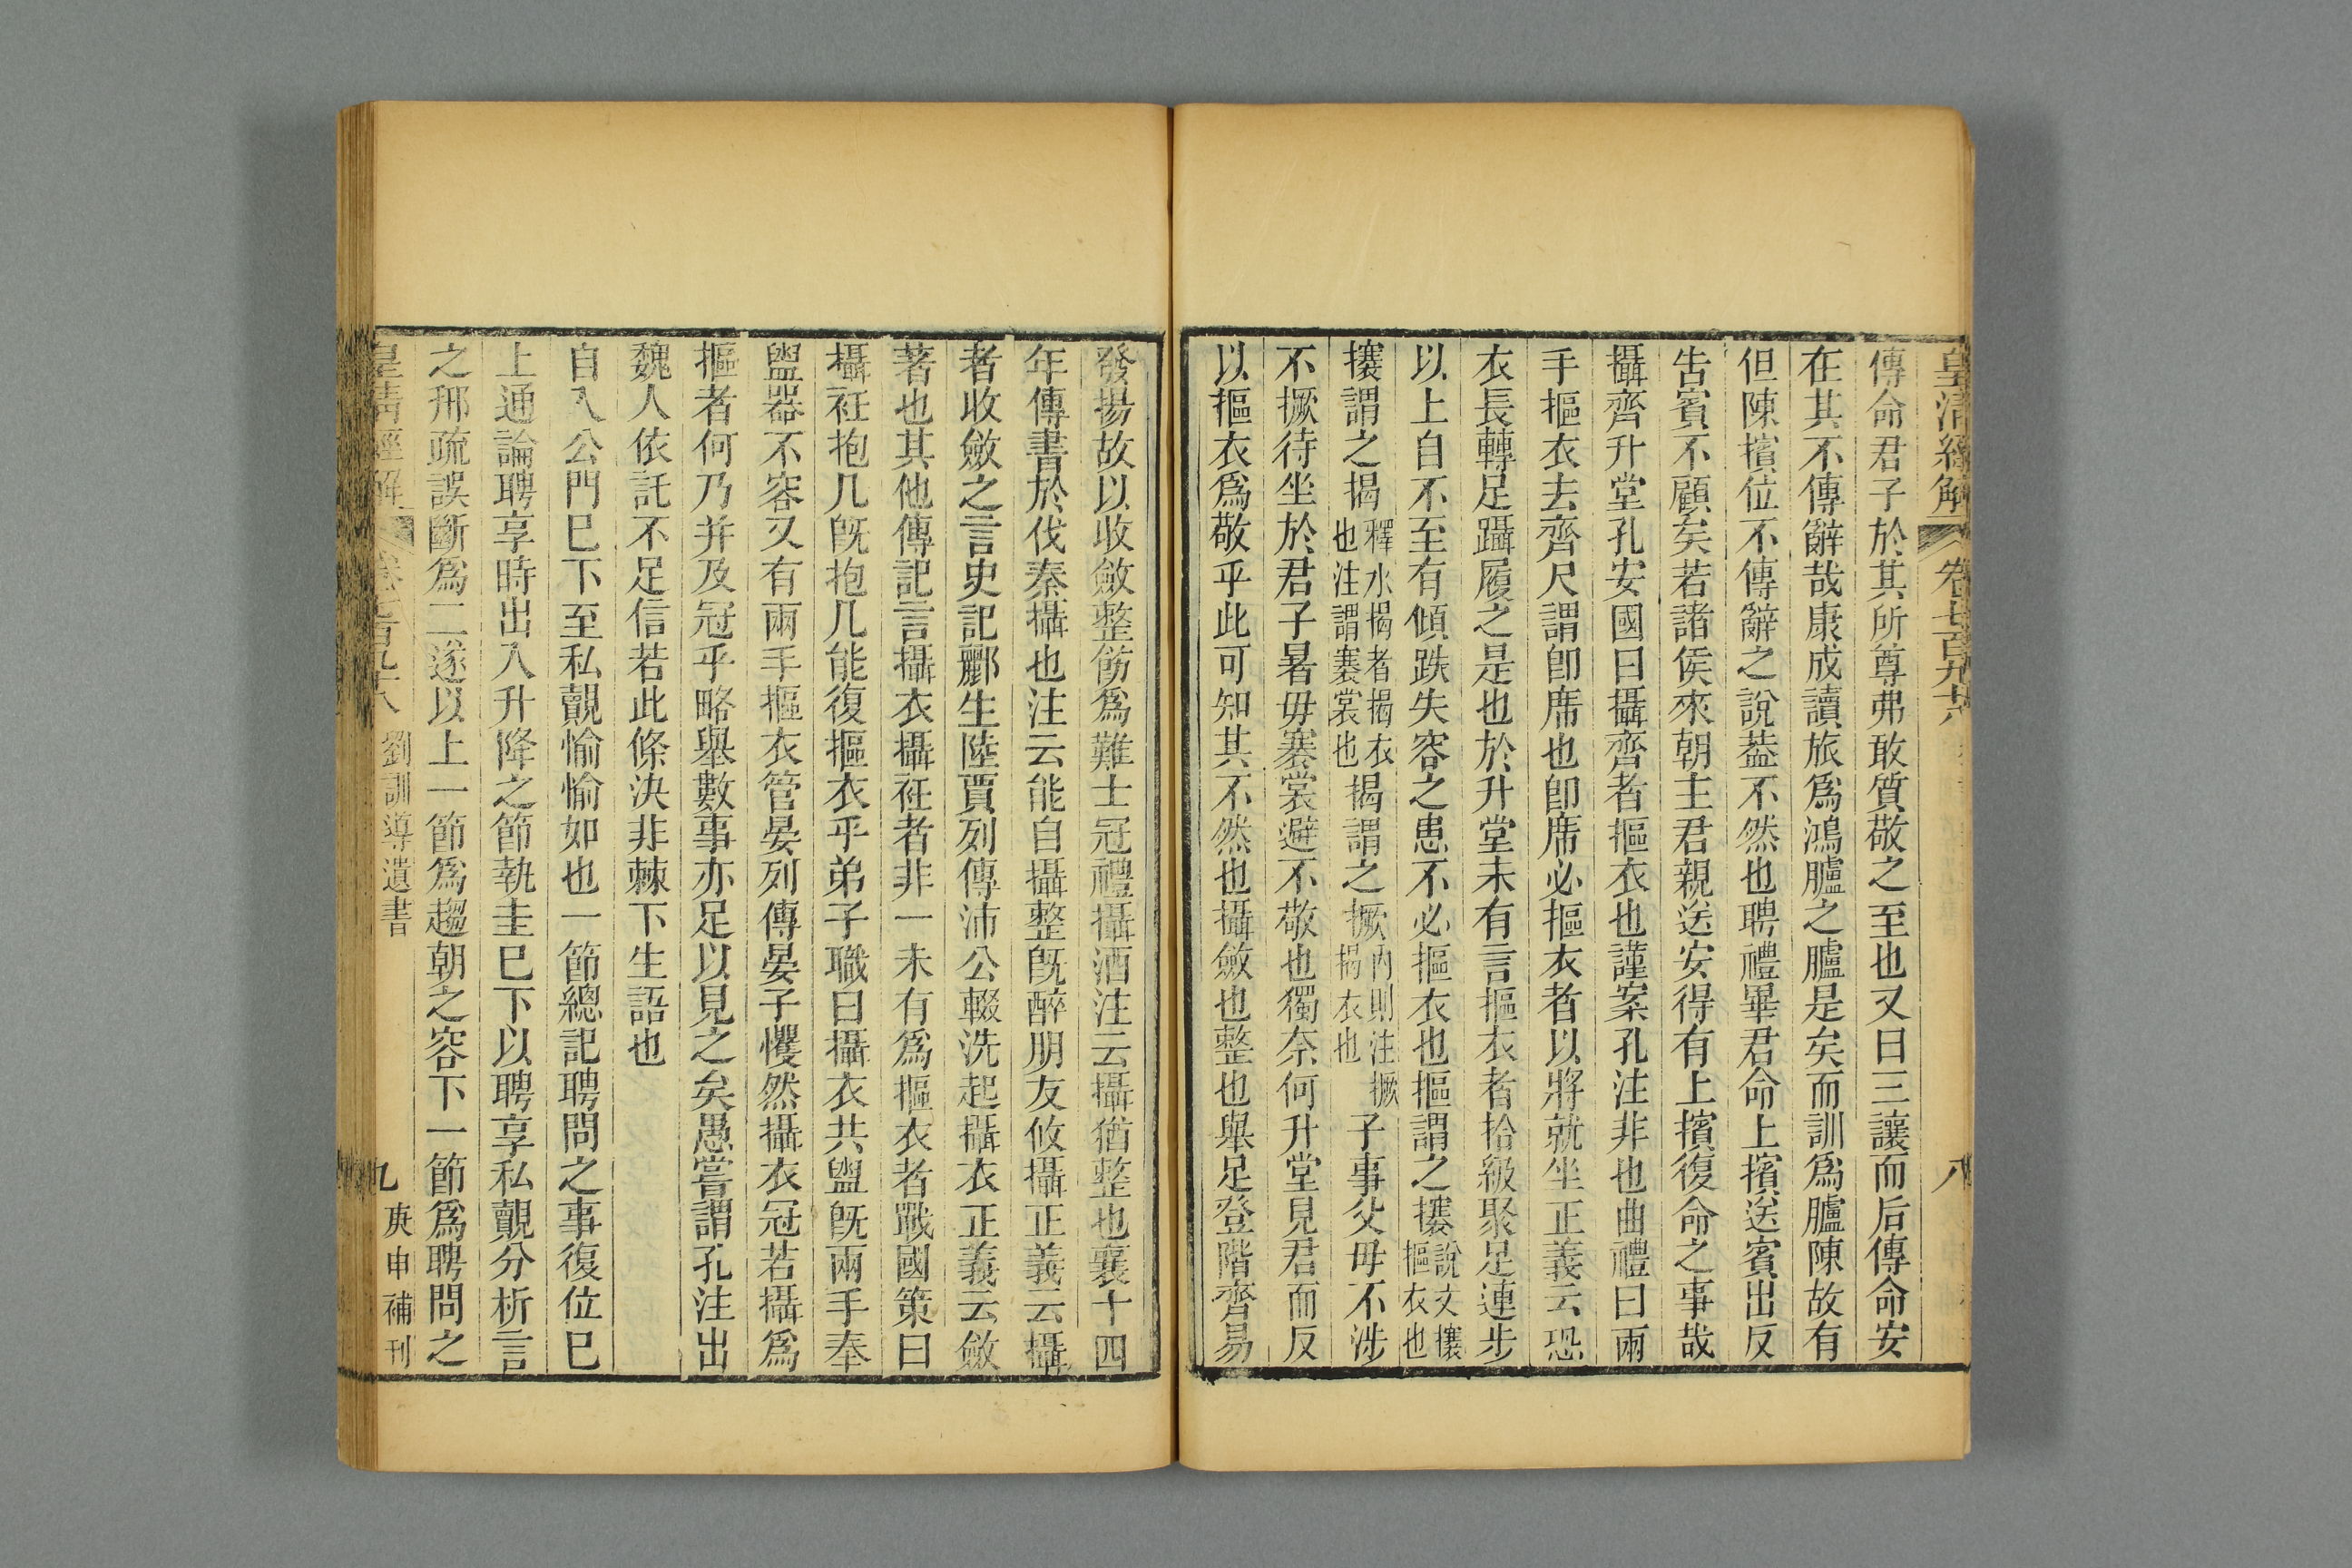 皇清經解 卷七百九十八 八
傳命君子於其所尊弗敢質敬之至也又曰三讓而后傳命安
在其不傳辭哉康成讀旅為鴻臚之臚是矣而訓為臚陳故有
但陳擯位不傳辭之說葢不然也聘禮畢君命上擯送賓出反
告賓不顧矣若諸侯來朝主君親送安得有上擯復命之事哉
攝齊升堂孔安國曰攝齊者摳衣也謹案孔注非也曲禮曰兩
手摳衣去齊尺謂卽席也卽席必摳衣者以將就坐正義云恐
衣長轉足躡履之是也於升堂未有言摳衣者拾級聚足連步
以上自不至有傾跌失容之患不必摳衣也摳謂之摟說文攐摳衣也
攐謂之揭釋水揭者揭衣也注謂褰裳也揭謂之撅內則注撅揭衣也子事父母不涉
不撅待坐於君子暑毋褰裳避不敬也獨奈何升堂見君而反
以摳衣爲敬乎此可知其不然也攝斂也整也舉足登階齊易
發揚故以收斂整飭爲難士冠禮攝酒注云攝猶整也襄十四
年傳書於伐秦攝也注云能自攝整旣醉朋友攸攝正義云攝
者收斂之言史記酈生陸賈列傳沛公輟洗起攝衣正義云斂
著也其他傳記言攝衣攝衽者非一未有爲摳衣者戰國策曰
攝衽抱几旣抱几能復摳衣乎弟子職曰攝衣共盥旣兩手奉
盥器不容又有兩手摳衣管晏列傳晏子戄然攝衣冠若攝爲
摳者何乃并及冠乎略舉數事亦足以見之矣愚嘗謂孔注出
魏人依託不足信若此條決非棘下生語也
自入公門巳下至私覿愉愉如也一節總記聘問之事復位巳
上通論聘享時出入升降之節執圭巳下以聘享私覿分析言
之邢疏誤斷爲二遂以上一節爲趨朝之容下一節爲聘問之
皇清經解 卷七百九十八 劉訓導遺書 九 庚申補刊